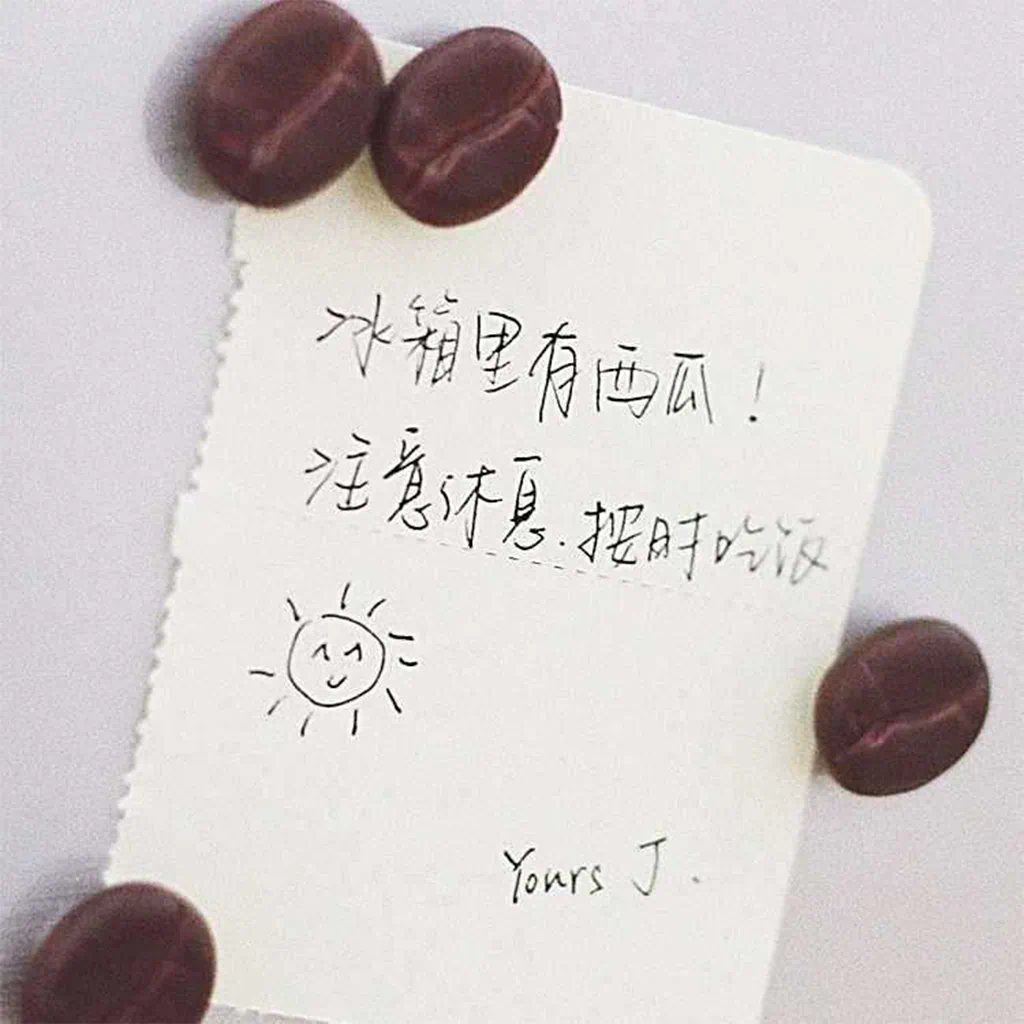 冰箱里有西瓜！
注意休息.按时吃饭
Yours J.